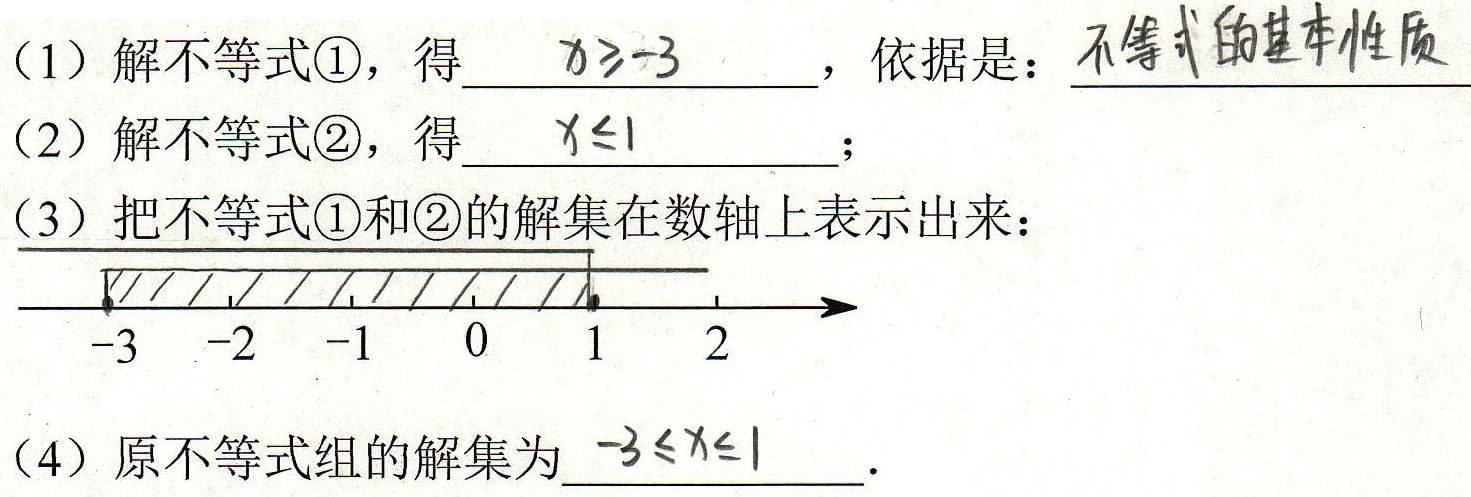 （1）解不等式①，得 x≥-3 ，依据是：不等式的基本性质
（2）解不等式②，得 x≤1 ；
（3）把不等式①和②的解集在数轴上表示出来：
-3 -2 -1 0 1 2
（4）原不等式组的解集为 -3≤x≤1 .